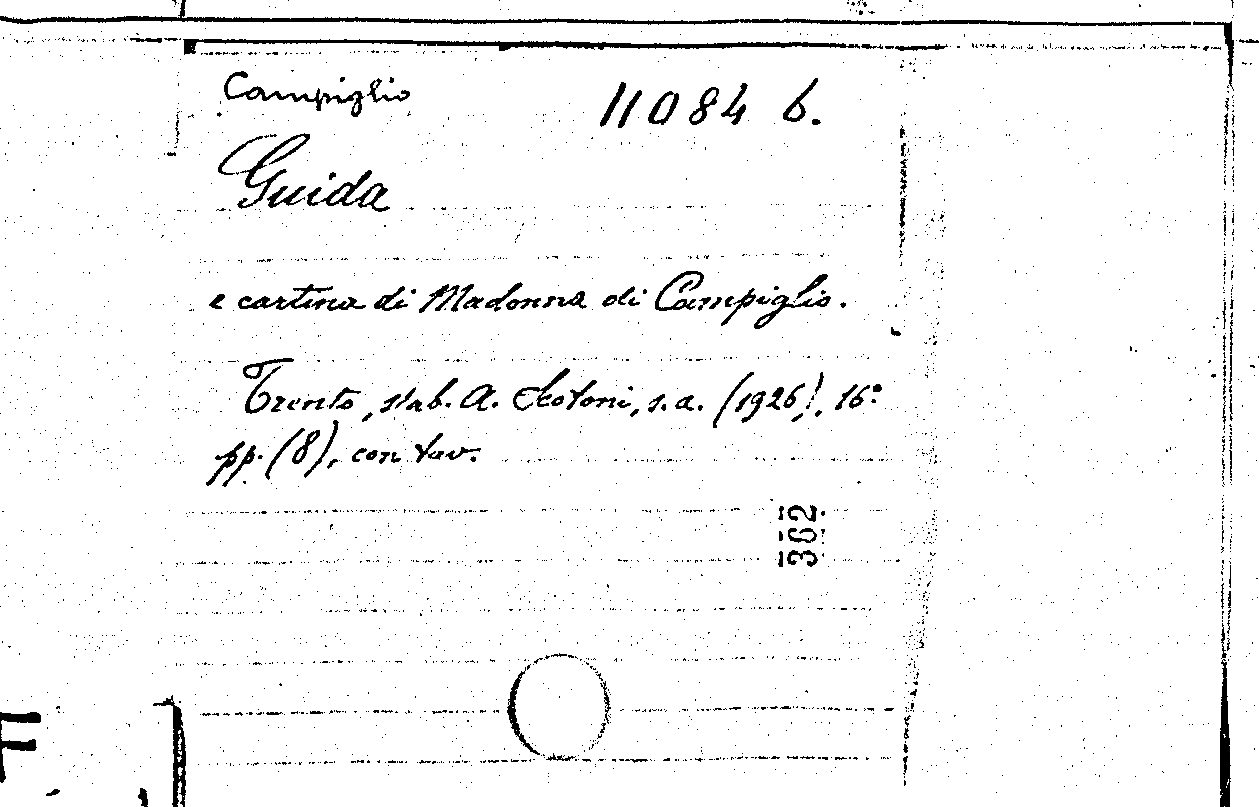 Campiglio
11084 b.
Guida
e cartina di Madonna di Campiglio.
Trento, stab. A. Scotoni, s.a. (1926), 16º
pp. (8), con tav.
362
F